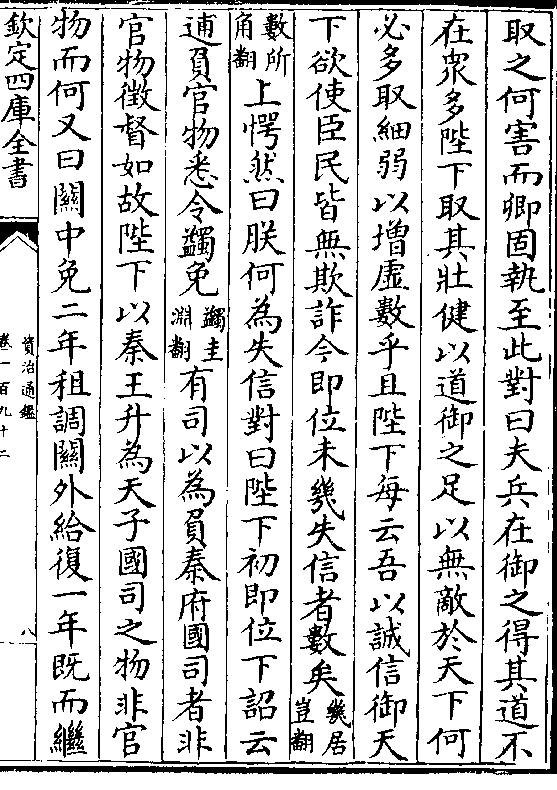 取之何害而卿固執至此對曰夫兵在御之得其道不
在衆多陛下取其壯健以道御之足以無敵於天下何
必多取細弱以増虚數乎且陛下每云吾以誠信御天
下欲使臣民皆無欺詐今即位未幾失信者數矣幾居豈翻
數所角翻上愕然曰朕何為失信對曰陛下初即位下詔云
逋負官物悉令蠲免蠲圭淵翻有司以為負秦府國司者非
官物徴督如故陛下以秦王升為天子國司之物非官
物而何又曰關中免二年租調關外給復一年既而繼
欽定四庫全書
資治通鑑
卷一百九十二
八